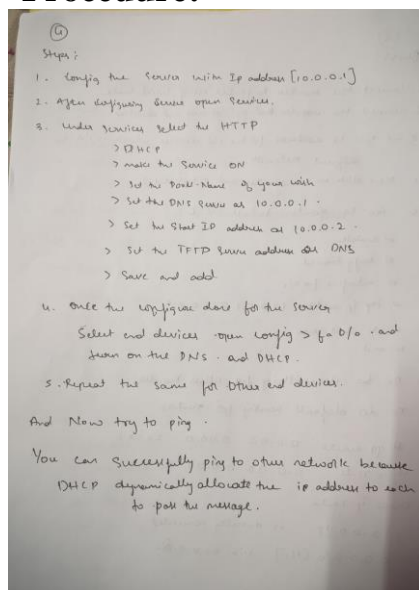 Procedure:
4
Steps:
1. Config the Server with Ip address [10.0.0.1]
2. After configuring Server open Services.
3. Under Services select the HTTP
> DHCP
> make the Service ON
> Set the Pool-Name of your wish
> Set the DNS Server as 10.0.0.1.
> Set the Start IP address as 10.0.0.2.
> Set the TFTP Server address as DNS
> Save and add
4. Once the configure done for the Server
Select end devices open config > fa0/0 and
turn on the DNS and DHCP.
5. Repeat the same for Other end devices.
And Now try to ping.
You can Successfully ping to other network because
DHCP dynamically allocate the ip address to each
to pass the message.